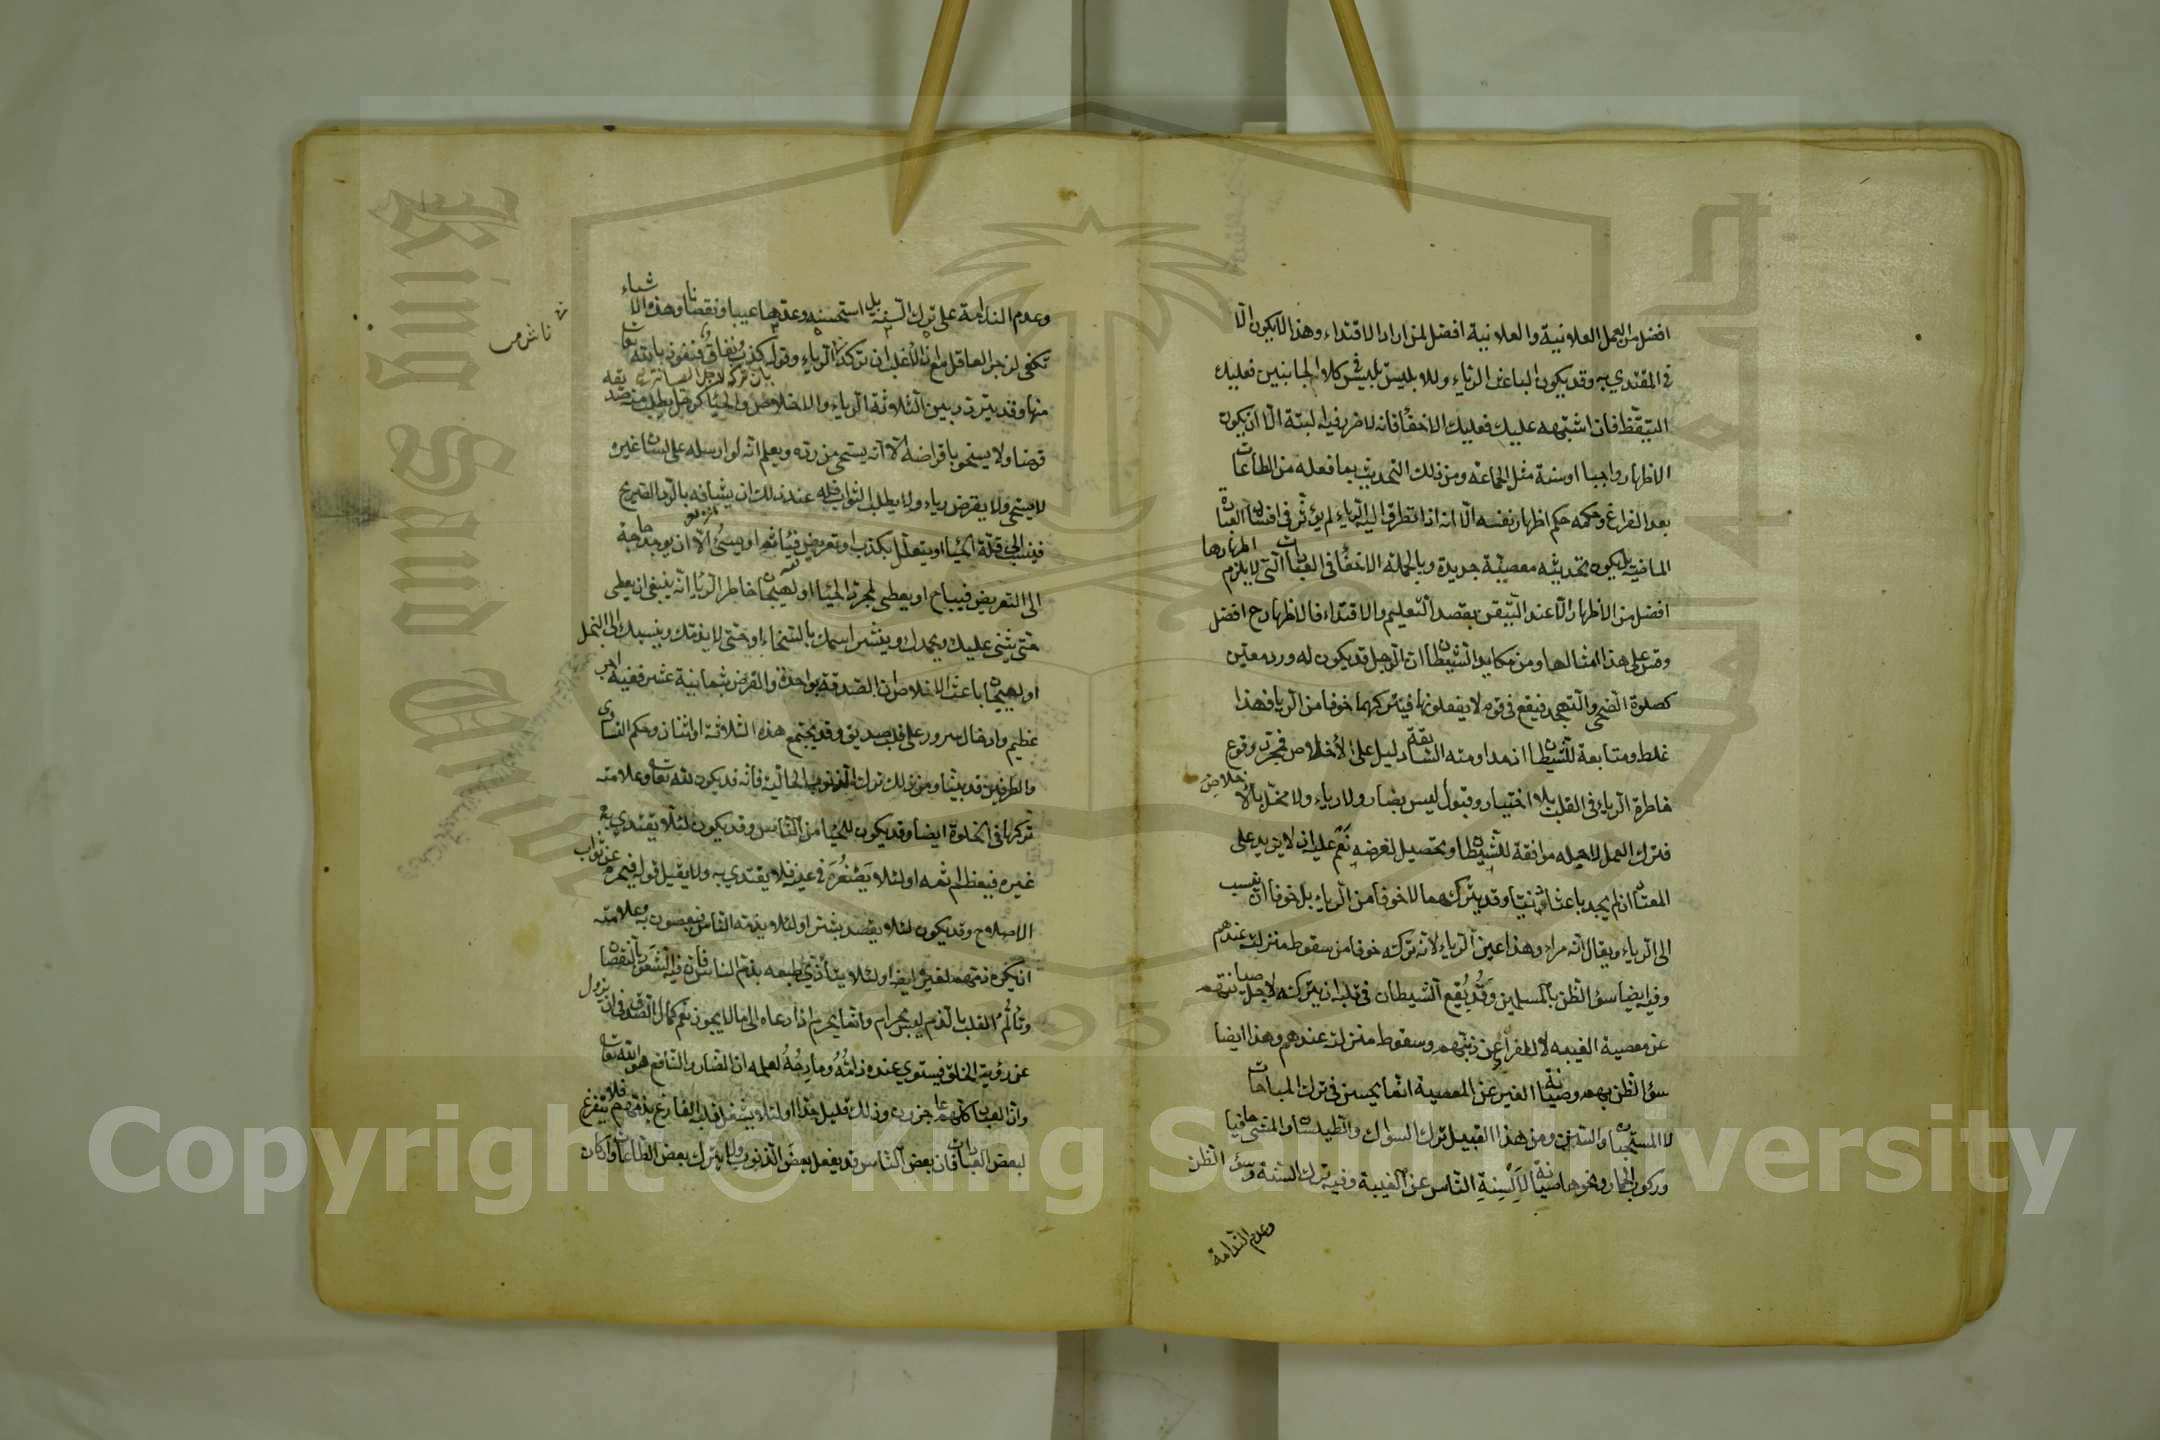 افضل من العمل العلانية والعلانية افضل لمن اراد الاقتداء وهذا لا يكون الا
في المقتدي به وقد يكون الباعث الرياء وللابليس تلبيس في كلا الجانبين فعليك
التيقظ فان اشتبه عليك فعليك الاخفا فانه لا ضرر فيه البتة الا ان يكون
الاظهار واجبا او سنة مثل الجماعة ومن ذلك التحديث بما فعله من الطاعات
بعد الفراغ وحكمه حكم اظهار نفسه الا انه اذا تطرق اليه الرياء لم يؤثر في افساد العبادة
الماضية بل يكون تحديثه معصية جديدة وبالجملة الاخفا في العبادات التي لا يلزم اظهارها
افضل من الاظهار الا عند التيقن بقصد التعليم والاقتداء فالاظهار ح افضل
وقس على هذا امثالها ومن مكايد الشيطان ان الرجل قد يكون له ورد معين
كصلوة الضحى والتهجد فيقع في قوم لا يفعلونها فيتركهما خوفا من الريا فهذا
غلط ومتابعة للشيطان اذ مداومته السابقة دليل على الاخلاص فمجرد وقوع
خاطرة الرياء في القلب بلا اختيار وقبول ليس بضار ولا رياء ولا مخل بالاخلاص
فترك العمل لاجله موافقة للشيطان وتحصيل لغرضه نعم عليه ان لا يزيد على
المعتاد ان لم يجد باعثا دينيا وقد يتركهما لا خوفا من الرياء بل خوفا ان ينسب
الى الرياء ويقال انه مراء وهذا عين الرياء لانه تركه خوفا من سقوط منزلته عندهم
وفيه ايضا سؤ الظن بالمسلمين وقد يوقع الشيطان في قلبه ان يتركه لاجل صيانتهم
عن معصية الغيبة لا للفرار عن ذمهم وسقوط منزلته عندهم وهذا ايضا
سؤ الظن بهم وصيانة الغير عن المعصية انما يحسن في ترك المباحات
لا المستحبات والسنن ومن هذا القبيل ترك السواك والطيلسان والمشي حافيا
وركوب الحمار ونحوها صيانة لالسنة الناس عن الغيبة وفيه ترك السنة وسؤ الظن
وعدم الندامة
وعدم الندامة على ترك السنة بل استحسنه وعدها عيبا ونقصانا وهذه الاشياء
تكفي لزجر العاقل مع ان الاغلب ان تركه الرياء وقوله كذب ونفاق فنعوذ بالله تعالى
منها وقد يتردد بين الثلاثة الرياء والاخلاص والحيا كرجل يطلب منه صديقه
قرضا ولا يسخو باقراضه الا انه يستحي من رده ويعلم انه لو ارسله على لسان غيره
لا يستحي ولا يقرض رياء ولا يطلب الثواب فله عند ذلك ان يشافه بالرد الصريح
فينسب الى قلة الحيا او يتعلل بكذب او تعريض فيأثم او يسيء الا ان يوجد حاجة
الى التعريض فيباح او يعطي لمجرد الحيا او لهيجان خاطر الرياء انه ينبغي ان يعطي
حتى يثني عليك ويحمدك وينشر اسمك بالسخاء او حتى لا يذمك وينسبك الى البخل
او لهيجان باعث الاخلاص ان الصدقة بواحدة والقرض بثمانية عشر ففيه اجر
عظيم وادخال سرور على قلب صديق وقد يجتمع هذه الثلاثة او اثنان وحكم التساوي
والطرفين قد بيناه ومن ذلك ترك الذنوب الحالية فانه قد يكون لله تعالى وعلامته
تركها في الخلوة ايضا وقد يكون للحيا من الناس وقد يكون لئلا يقتدي به
غيره فيعظم اثمه او لئلا يصغر في عينه فلا يقتدي به ولا يقبل قوله فيحرم عن ثواب
الاصلاح وقد يكون لئلا يقصد بشر او لئلا يذمه الناس فيعصون به وعلامته
ان يكره ذمهم لغيره ايضا او لئلا يتأذى طبعه بذم الناس فان فيه الشعور بالنقصان
وتألم القلب بالذم ليس بحرام وانما يحرم اذا دعاه الى ما لا يجوز نعم كمال الصدق في ان يزول
عن رؤية الخلق فيستوي عنده ذامه ومادحه لعلمه ان الضار والنافع هو الله تعالى
وان العباد كلهم عاجزون وذلك قليل جدا او لئلا يشغل قلبه الفارغ بذمهم فلا يتفرغ
لبعض العبادات فان بعض الناس قد يفعل بعض الذنوب ولا يترك بعض الطاعات وان كان